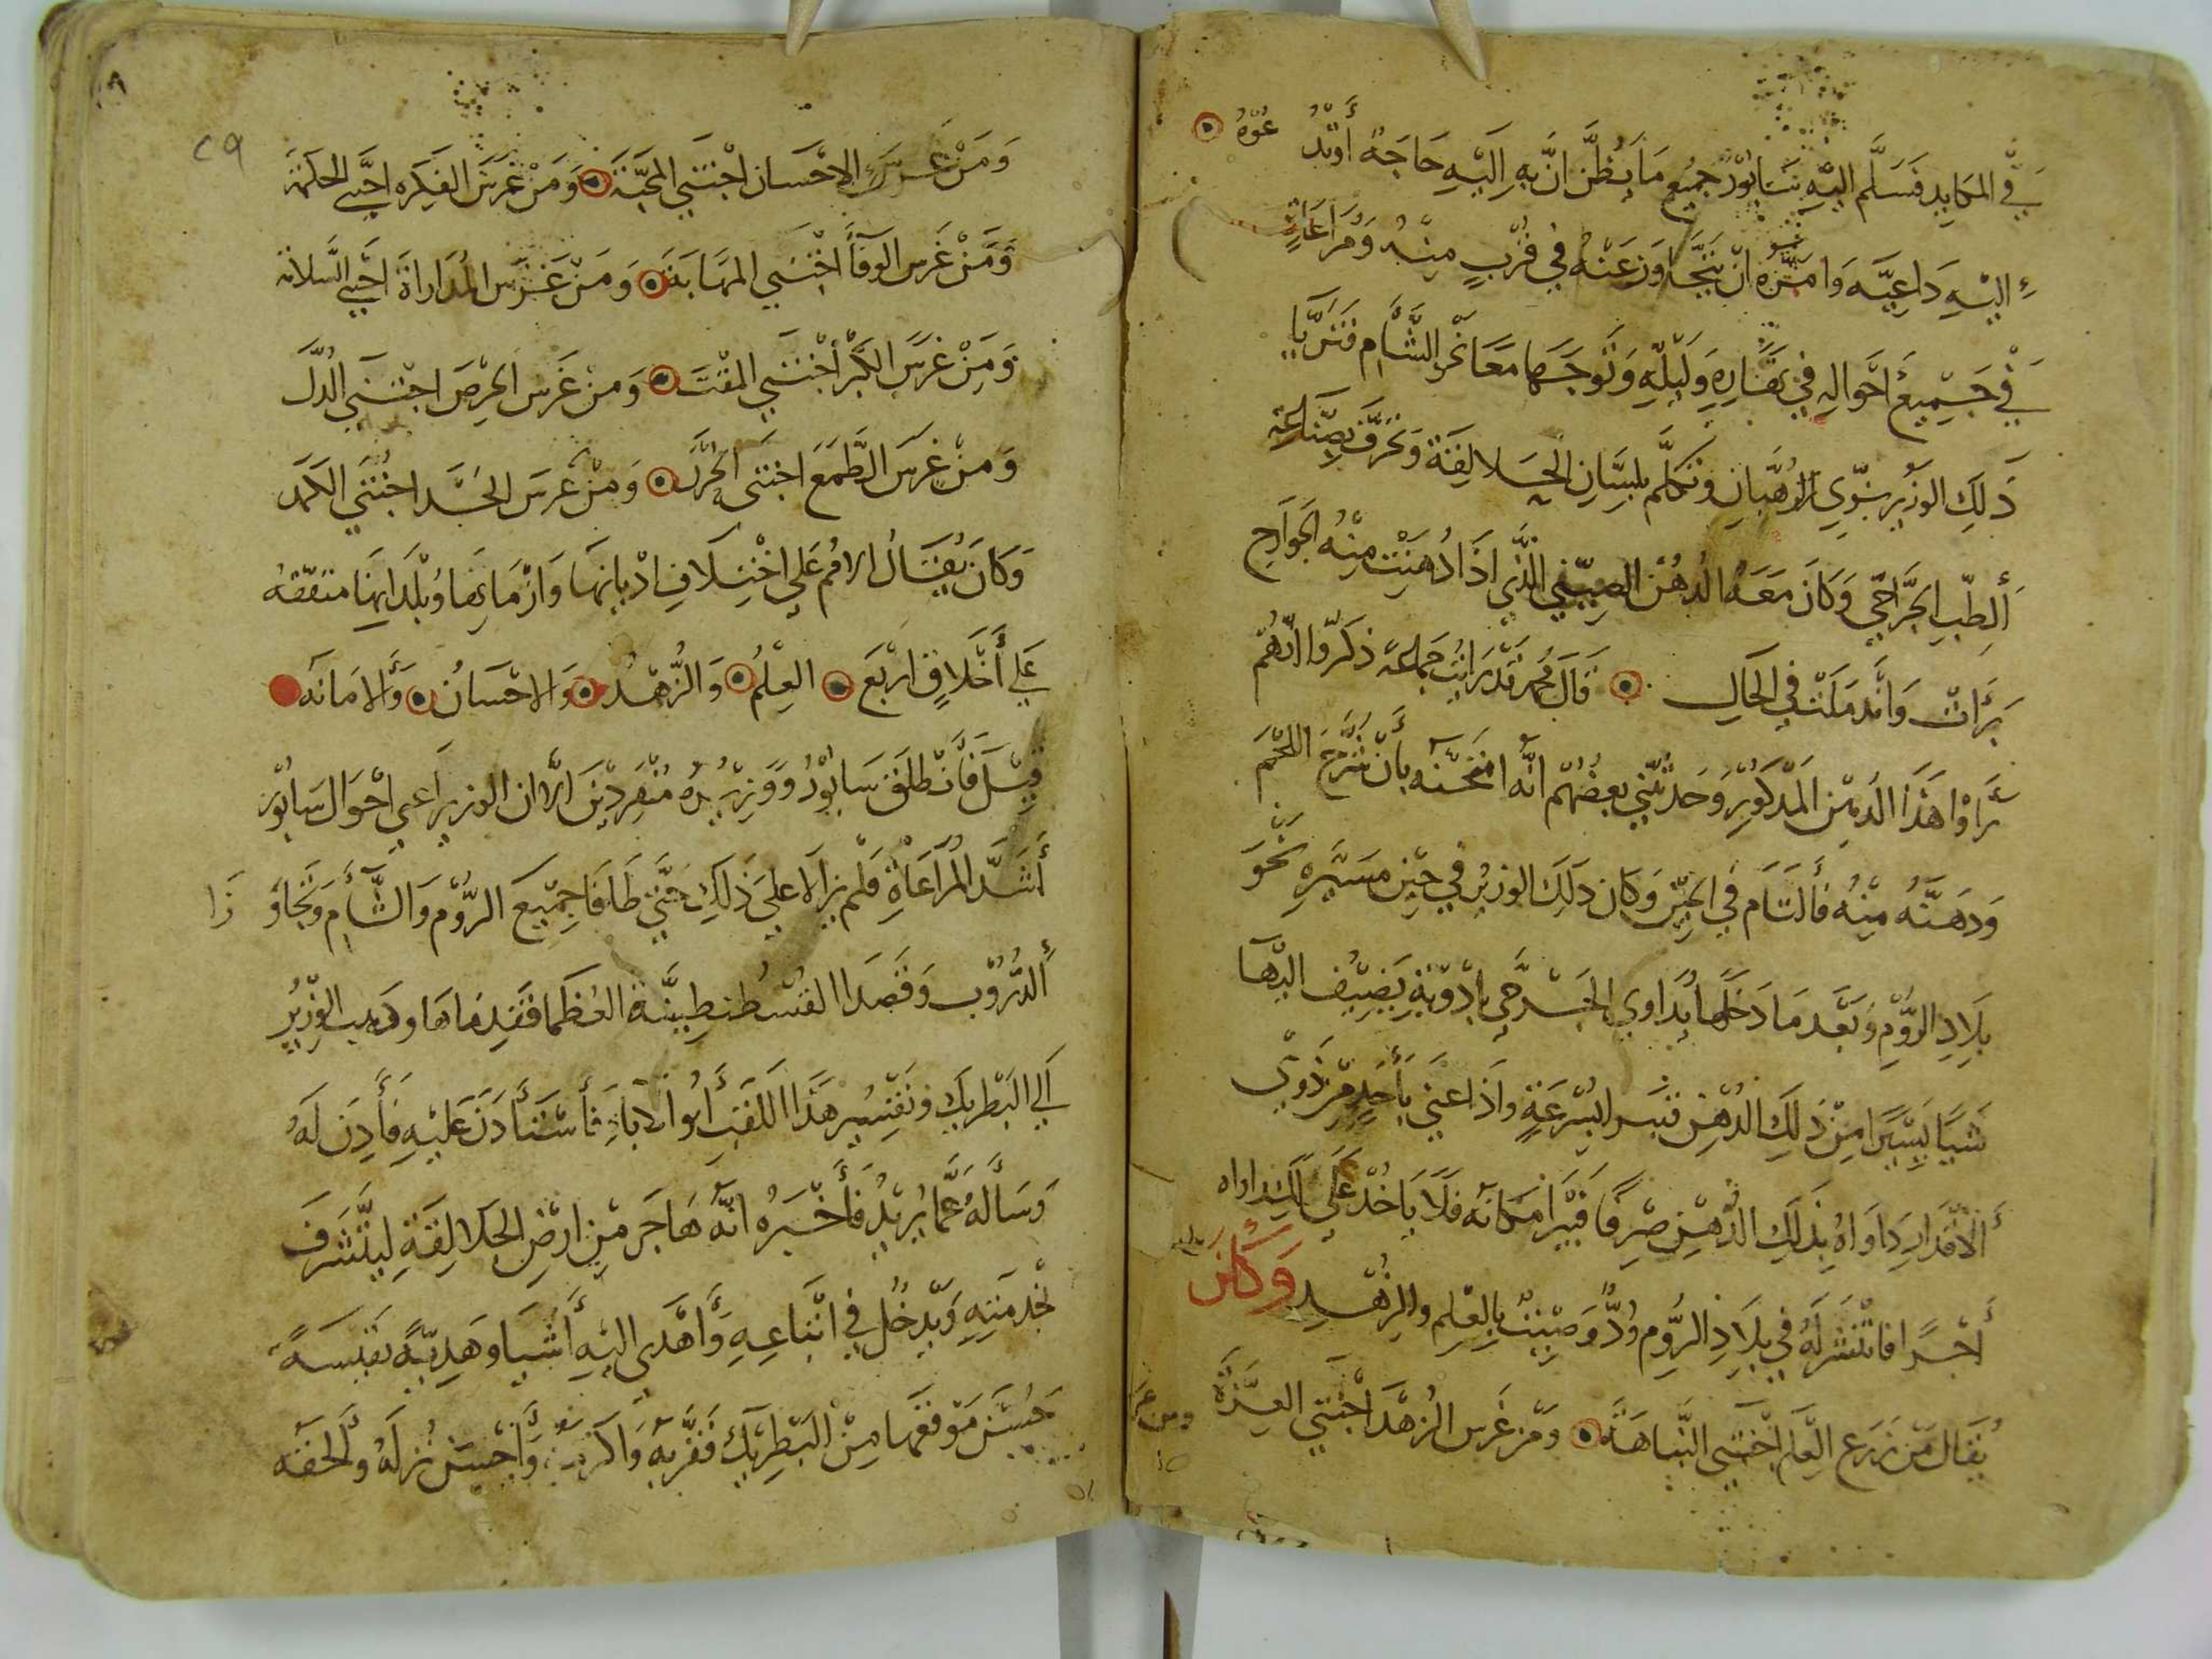 في المكايد فسلم اليه سابور جميع ما يظن ان به اليه حاجة او تدعوه
اليه داعية وامره ان يتجاوز عنه في قرب منه ومراعاة
في جميع احواله في نهاره وليله وتوجها معا نحو الشام فتزيا
ذلك الوزير بزي الرهبان وتكلم بلسان الجلالقة وتحرف بصناعة
الطب الجراحي وكان معه الدهن الصيني الذي اذا دهنت منه الجوارح
برات واندملت في الحال قال محمد قد رايت جماعة ذكروا انهم
راوا هذا الدهن المذكور وحدثني بعضهم انه امتحنه بأن شرح اللحم
ودهنه منه فالتام في الحين وكان ذلك الوزير في حين مسيره نحو
بلاد الروم وبعد ما دخلها يداوي الجرحي بادوية يضيف اليها
شيا يسيرا من ذلك الدهن فتبرا بسرعة واذا عني بأحد من ذوي
الاقدار داواه بذلك الدهن صرفا فيبرا مكانه فلا ياخذ علي مداواه
أجرا فانتشر له في بلاد الروم ود وصيت بالعلم والزهد وكان
يقال من زرع العلم اجتني النباهة ومن غرس الزهد اجتني العزة
ومن غر
٢٩
ومن غرس الاحسان اجتني المحبة ومن غرس الفكره اجتني الحكمة
ومن غرس الوفآ اجتني المهابة ومن غرس المداراة اجتني السلامة
ومن غرس الكبر اجتني المقت ومن غرس الحرص اجتني الذل
ومن غرس الطمع اجتني الخزي ومن غرس الحسد اجتني الكمد
وكان يقال الامم علي اختلاف اديانها وازمانها وبلدانها متفقه
علي أخلاق اربع العلم والزهد والاحسان والامانه
قيل فانطلق سابور ووزيره منفردين الا ان الوزير يراعي احوال سابور
أشد المراعاة فلم يزالا علي ذلك حتي طافا جميع الروم والشأم وتجاوزا
الدروب وقصدا القسطنطينية العظما فقدماها وذهب الوزير
الي البطريك وتفسير هذا اللقب أبو الاباء فأستأذن عليه فأذن له
وساله عما يريد فأخبره انه هاجر من ارض الجلالقة ليتشرف
بخدمته ويدخل في اتباعه وأهدي اليه أشيا وهدية نفيسة
حسن موقعها من البطريك فقربه واكرمه وأحسن نزله والحقه